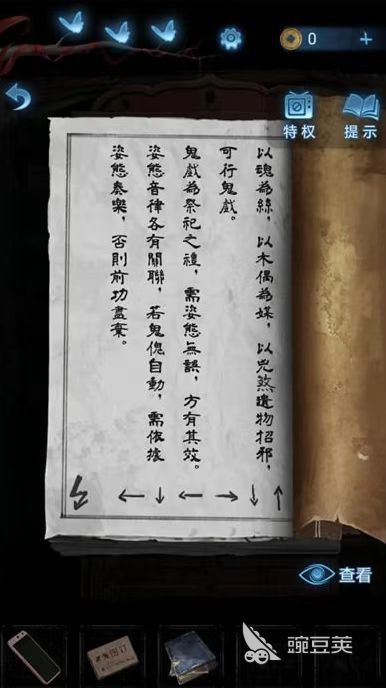 0
特权
提示
以魂為絲，以木偶為媒，以兇煞遺物招邪，
可行鬼戲。
鬼戲為祭祀之禮，需姿態無誤，方有其效。
姿態音律各有關聯，若鬼傀自動，需依據
姿態奏樂，否則前功盡棄。
↑ ↓ → ← ↓ ←
查看
豌豆荚